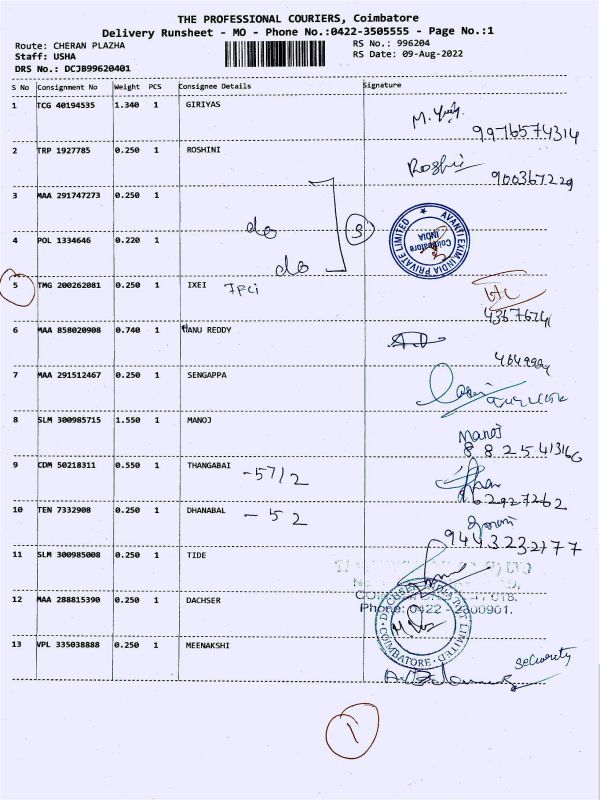 THE PROFESSIONAL COURIERS, Coimbatore
Delivery Runsheet - MO - Phone No.:0422-3505555 - Page No.:1
Route: CHERAN PLAZHA
RS No.: 996204
Staff: USHA
RS Date: 09-Aug-2022
DRS No.: DCJB99620401
S No Consignment No Weight PCS Consignee Details Signature
1 TCG 40194535 1.340 1 GIRIYAS
9976574314
2 TRP 1927785 0.250 1 ROSHINI
Roshi
900367229
3 MAA 291747273 0.250 1
do
3
AVANTI EXIM INDIA PRIVATE LIMITED
Coimbatore
INDIA
4 POL 1334646 0.220 1
do
5 TMG 200262081 0.250 1 IXEI
6 MAA 858020908 0.740 1 HANU REDDY
7 MAA 291512467 0.250 1 SENGAPPA
8 SLM 300985715 1.550 1 MANOJ
Manoj
9 CDM 50218311 0.550 1 THANGABAI -57/2
10 TEN 7332908 0.250 1 DHANABAL - 52
9443232177
11 SLM 300985008 0.250 1 TIDE
Phone: 0422 - 2600901.
12 MAA 288815390 0.250 1 DACHSER
DACHSER INDIA PVT LIMITED
COIMBATORE
13 VPL 335038888 0.250 1 MEENAKSHI
Security
1